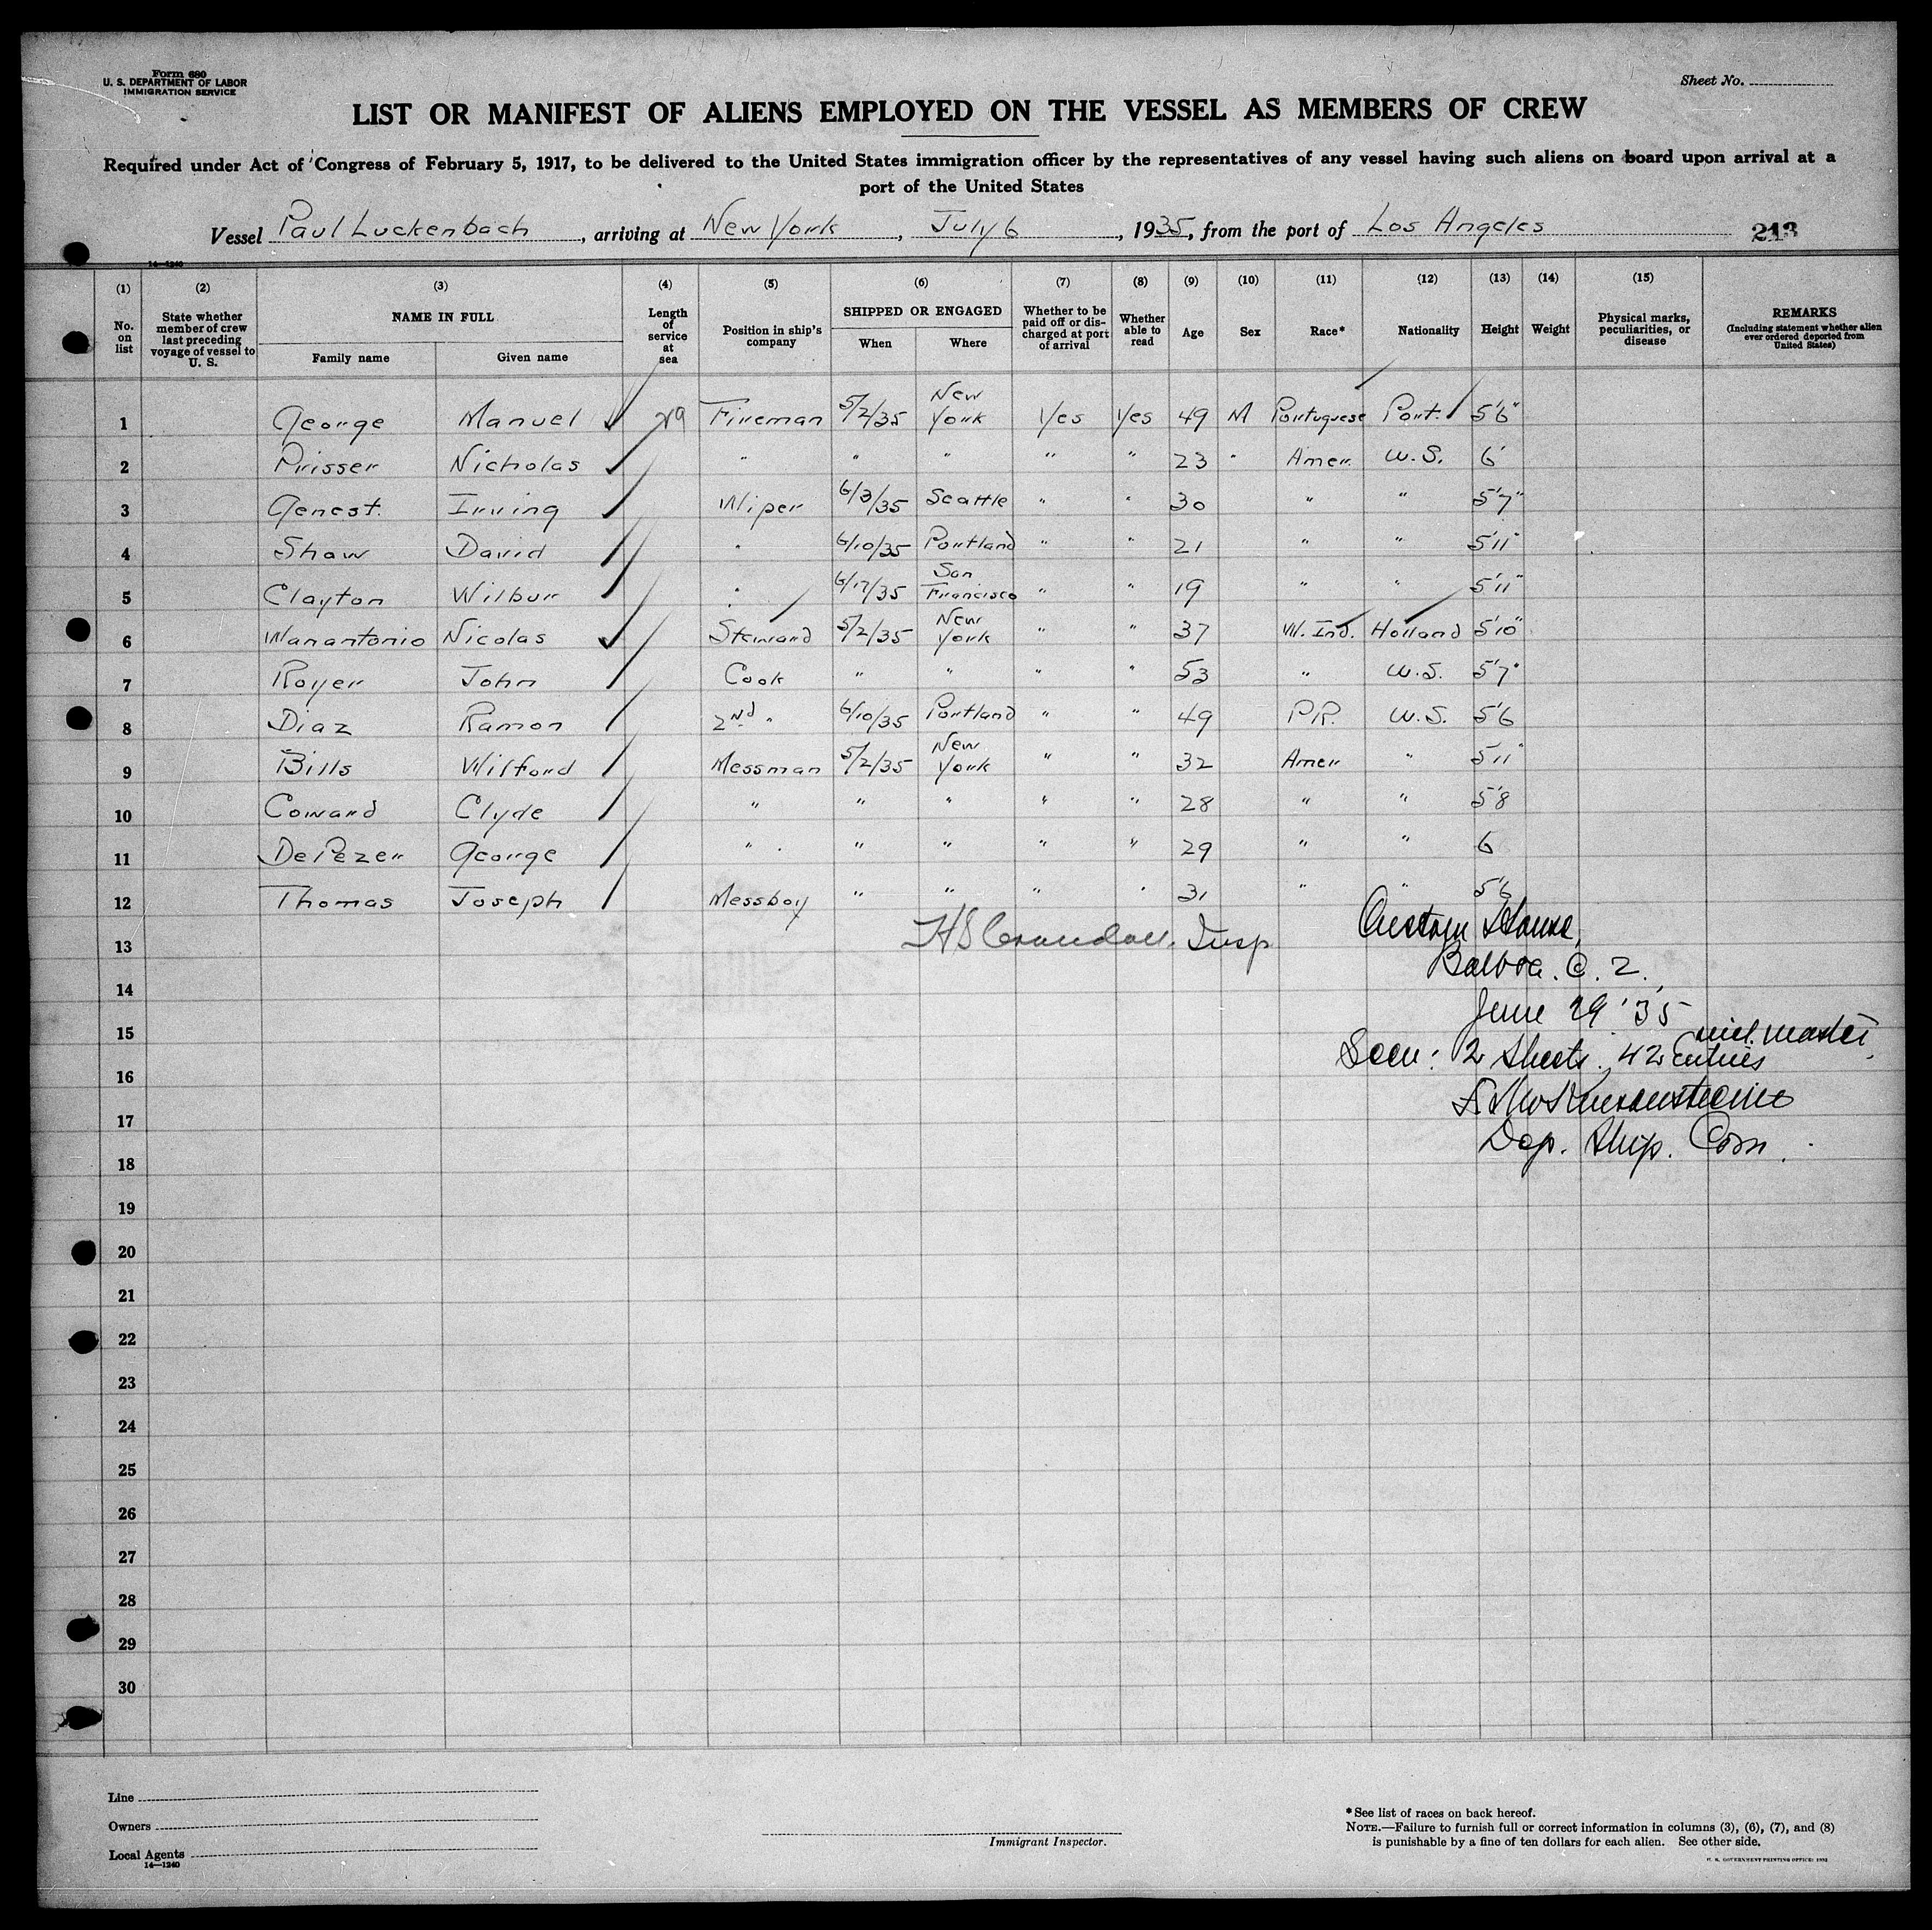 Form 680
U. S. DEPARTMENT OF LABOR
IMMIGRATION SERVICE
Sheet No.
LIST OR MANIFEST OF ALIENS EMPLOYED ON THE VESSEL AS MEMBERS OF CREW
Required under Act of Congress of February 5, 1917, to be delivered to the United States immigration officer by the representatives of any vessel having such aliens on board upon arrival at a
port of the United States
Vessel Paul Luckenbach, arriving at New York, July 6, 1935, from the port of Los Angeles 213
14—1240
(1) No. on list
(2) State whether member of crew last preceding voyage of vessel to U. S.
(3) NAME IN FULL Family name Given name
(4) Length of service at sea
(5) Position in ship's company
(6) SHIPPED OR ENGAGED When Where
(7) Whether to be paid off or discharged at port of arrival
(8) Whether able to read
(9) Age
(10) Sex
(11) Race*
(12) Nationality
(13) Height
(14) Weight
(15) Physical marks, peculiarities, or disease
REMARKS (Including statement whether alien ever ordered deported from United States)
1 George Manuel 29 Fireman 5/2/35 New York Yes Yes 49 M Portuguese Port. 5'6"
2 Prisser Nicholas " " " " " 23 " Amer. U.S. 6'
3 Genest. Irving Wiper 6/3/35 Seattle " " 30 " " 5'7"
4 Shaw David " 6/10/35 Portland " " 21 " " 5'11"
5 Clayton Wilbur " 6/17/35 San Francisco " " 19 " " 5'11"
6 Wanantonio Nicolas Steward 5/2/35 New York " " 37 W. Ind. Holland 5'10"
7 Royer John Cook " " " " 53 " U.S. 5'7"
8 Diaz Ramon 2nd " 6/10/35 Portland " " 49 P.R. U.S. 5'6
9 Bills Wilford Messman 5/2/35 New York " " 32 Amer " 5'11"
10 Coward Clyde " " " " " 28 " " 5'8
11 DePezer George " " " " " 29 " " 6
12 Thomas Joseph Messboy " " " " 31 " " 5'6
13 H S Crandall. Insp
Custom House,
Balboa. C. Z.
14
June 29 '35
15
incl. master
Seen: 2 sheets, 42 entries
16
17
Dep. Ship. Com.
18
19
20
21
22
23
24
25
26
27
28
29
30
Line
Owners
Local Agents
14—1240
Immigrant Inspector.
*See list of races on back hereof.
NOTE.—Failure to furnish full or correct information in columns (3), (6), (7), and (8)
is punishable by a fine of ten dollars for each alien. See other side.